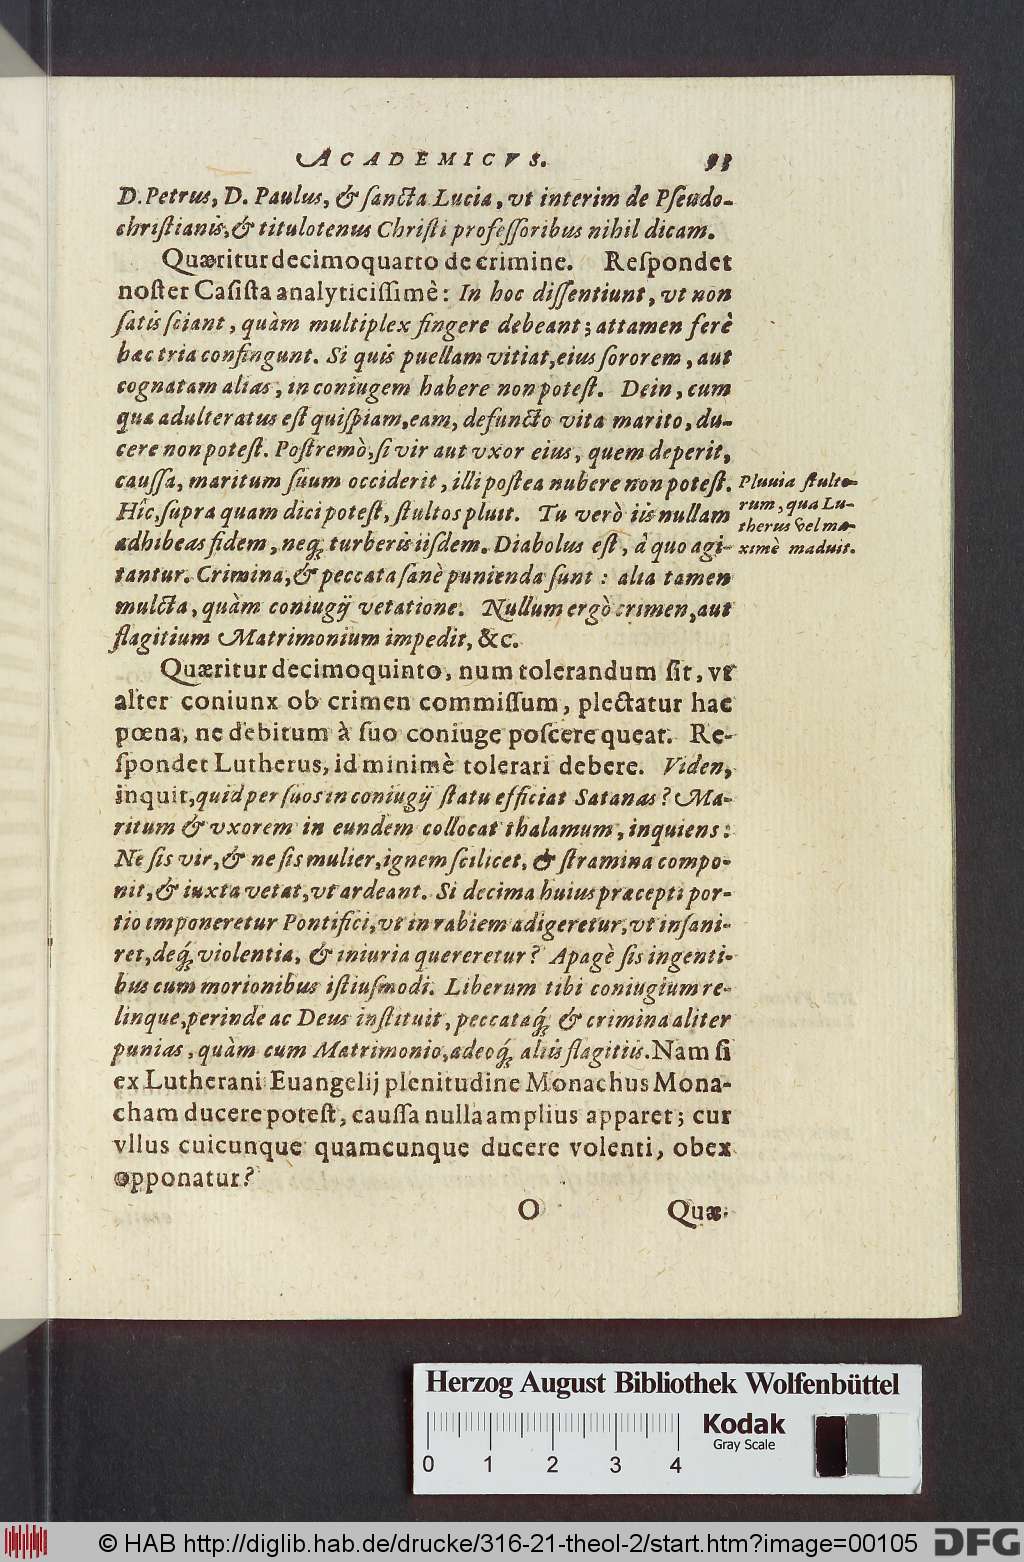 ACADEMICVS. 93
D. Petrus, D. Paulus, & ſancta Lucia, vt interim de Pſeudo-
chriſtianis, & titulotenus Chriſti profeſſoribus nihil dicam.
Quæritur decimoquarto de crimine. Reſpondet
noſter Caſiſta analyticiſſimè: In hoc diſſentiunt, vt non
ſatis ſciant, quàm multiplex fingere debeant; attamen ferè
hæc tria confingunt. Si quis puellam vitiat, eius ſororem, aut
cognatam alias, in coniugem habere non poteſt. Dein, cum
qua adulteratus eſt quiſpiam, eam, defuncto vita marito, du-
cere non poteſt. Poſtremò, ſi vir aut vxor eius, quem deperit,
cauſſa, maritum ſuum occiderit, illi poſtea nubere non poteſt.
Hîc, ſupra quam dici poteſt, ſtultos pluit. Tu verò iis nullam
adhibeas fidem, neq; turberis iiſdem. Diabolus eſt, à quo agi-
tantur. Crimina, & peccata ſanè punienda ſunt: alia tamen
mulcta, quàm coniugij vetatione. Nullum ergò crimen, aut
flagitium Matrimonium impedit, &c.
Pluuia ſtulto-
rum, qua Lu-
therus vel ma-
ximè maduit.
Quæritur decimoquinto, num tolerandum ſit, vt
alter coniunx ob crimen commiſſum, plectatur hac
pœna, ne debitum à ſuo coniuge poſcere queat. Re-
ſpondet Lutherus, id minimè tolerari debere. Viden,
inquit, quid per ſuos in coniugij ſtatu efficiat Satanas? Ma-
ritum & vxorem in eundem collocat thalamum, inquiens:
Ne ſis vir, & ne ſis mulier, ignem ſcilicet, & ſtramina compo-
nit, & iuxta vetat, vt ardeant. Si decima huius præcepti por-
tio imponeretur Pontifici, vt in rabiem adigeretur, vt inſani-
ret, deq; violentia, & iniuria quereretur? Apagè ſis ingenti-
bus cum morionibus iſtiuſmodi. Liberum tibi coniugium re-
linque, perinde ac Deus inſtituit, peccataq; & crimina aliter
punias, quàm cum Matrimonio, adeoq; aliis flagitiis. Nam ſi
ex Lutherani Euangelij plenitudine Monachus Mona-
cham ducere poteſt, cauſſa nulla amplius apparet; cur
vllus cuicunque quamcunque ducere volenti, obex
opponatur?
O Quæ-
Herzog August Bibliothek Wolfenbüttel
Kodak
Gray Scale
0 1 2 3 4
© HAB http://diglib.hab.de/drucke/316-21-theol-2/start.htm?image=00105 DFG